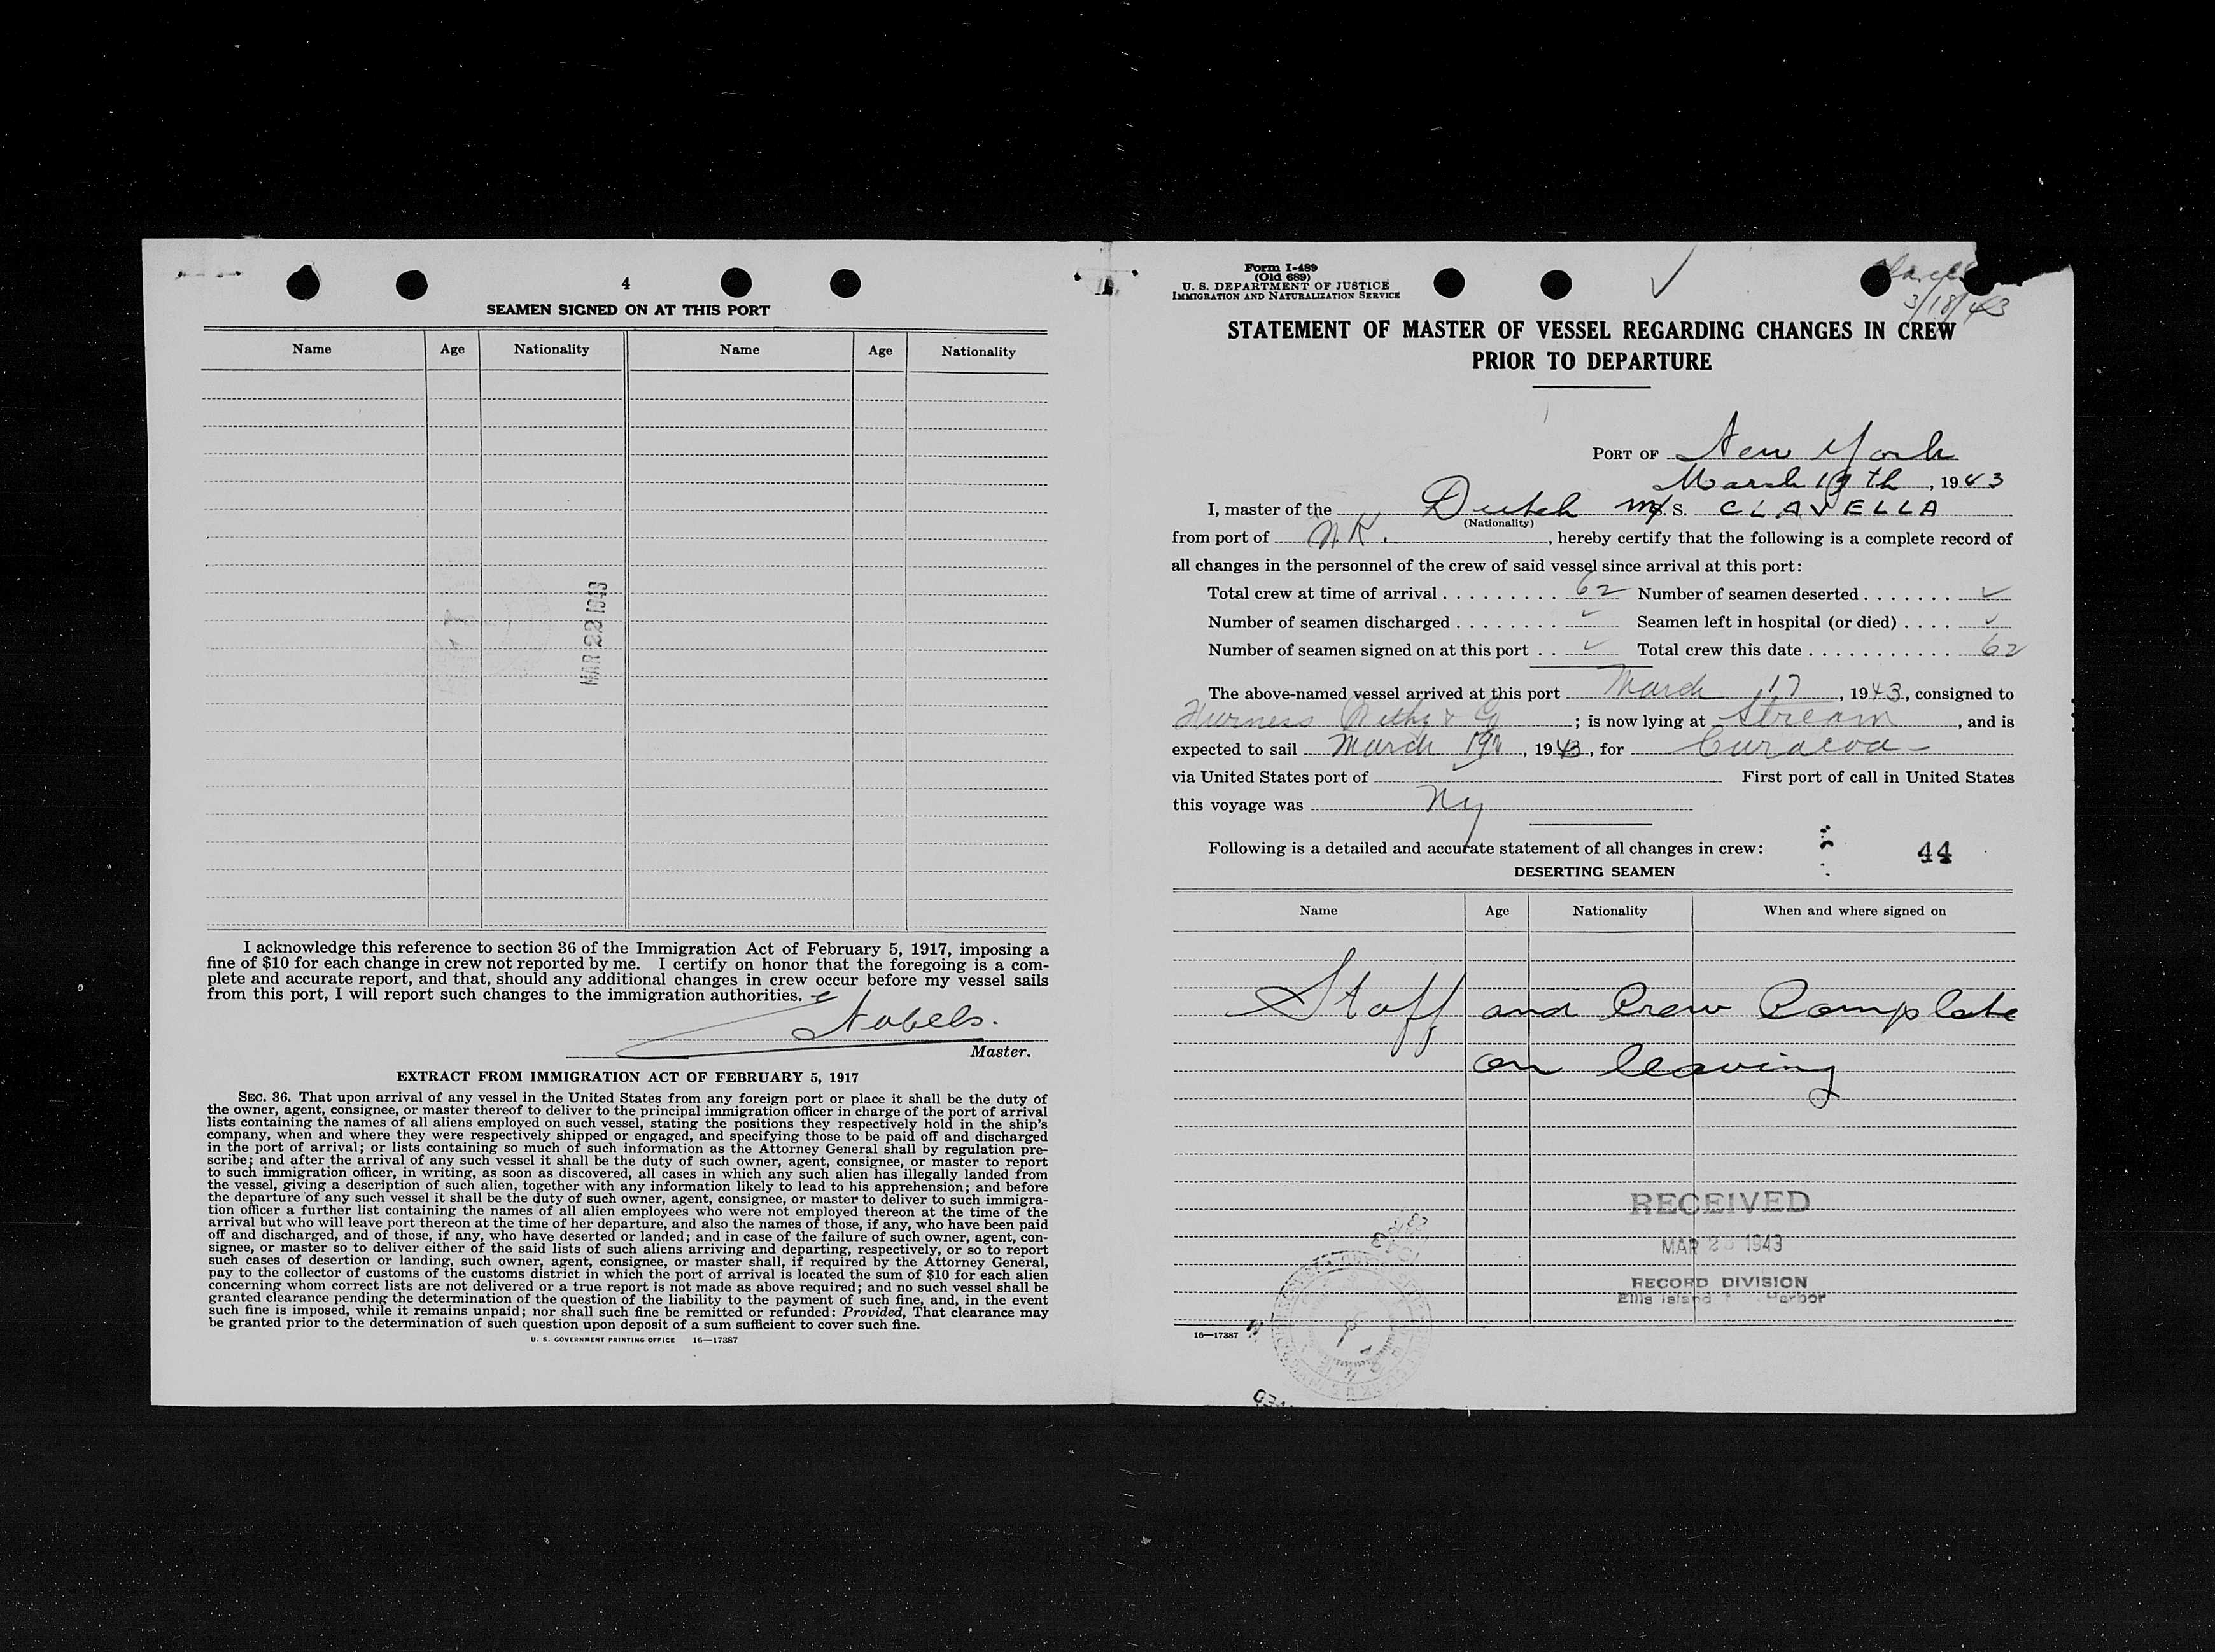 4
SEAMEN SIGNED ON AT THIS PORT
Name Age Nationality Name Age Nationality
MAR 22 1943
I acknowledge this reference to section 36 of the Immigration Act of February 5, 1917, imposing a
fine of $10 for each change in crew not reported by me. I certify on honor that the foregoing is a com-
plete and accurate report, and that, should any additional changes in crew occur before my vessel sails
from this port, I will report such changes to the immigration authorities.
Master.
EXTRACT FROM IMMIGRATION ACT OF FEBRUARY 5, 1917
SEC. 36. That upon arrival of any vessel in the United States from any foreign port or place it shall be the duty of
the owner, agent, consignee, or master thereof to deliver to the principal immigration officer in charge of the port of arrival
lists containing the names of all aliens employed on such vessel, stating the positions they respectively hold in the ship's
company, when and where they were respectively shipped or engaged, and specifying those to be paid off and discharged
in the port of arrival; or lists containing so much of such information as the Attorney General shall by regulation pre-
scribe; and after the arrival of any such vessel it shall be the duty of such owner, agent, consignee, or master to report
to such immigration officer, in writing, as soon as discovered, all cases in which any such alien has illegally landed from
the vessel, giving a description of such alien, together with any information likely to lead to his apprehension; and before
the departure of any such vessel it shall be the duty of such owner, agent, consignee, or master to deliver to such immigra-
tion officer a further list containing the names of all alien employees who were not employed thereon at the time of the
arrival but who will leave port thereon at the time of her departure, and also the names of those, if any, who have been paid
off and discharged, and of those, if any, who have deserted or landed; and in case of the failure of such owner, agent, con-
signee, or master so to deliver either of the said lists of such aliens arriving and departing, respectively, or so to report
such cases of desertion or landing, such owner, agent, consignee, or master shall, if required by the Attorney General,
pay to the collector of customs of the customs district in which the port of arrival is located the sum of $10 for each alien
concerning whom correct lists are not delivered or a true report is not made as above required; and no such vessel shall be
granted clearance pending the determination of the question of the liability to the payment of such fine, and, in the event
such fine is imposed, while it remains unpaid; nor shall such fine be remitted or refunded: Provided, That clearance may
be granted prior to the determination of such question upon deposit of a sum sufficient to cover such fine.
U. S. GOVERNMENT PRINTING OFFICE 16—17387
Form I-489
(Old 689)
U. S. DEPARTMENT OF JUSTICE
IMMIGRATION AND NATURALIZATION SERVICE
3/18/43
STATEMENT OF MASTER OF VESSEL REGARDING CHANGES IN CREW
PRIOR TO DEPARTURE
PORT OF New York
March 19th, 1943
I, master of the Dutch M/S. CLAVELLA
(Nationality)
from port of , hereby certify that the following is a complete record of
all changes in the personnel of the crew of said vessel since arrival at this port:
Total crew at time of arrival 62 Number of seamen deserted
Number of seamen discharged Seamen left in hospital (or died)
Number of seamen signed on at this port Total crew this date 62
The above-named vessel arrived at this port March 17, 1943, consigned to
Furness Withy & Co ; is now lying at Stream, and is
expected to sail March 19, 1943, for Curacoa
via United States port of First port of call in United States
this voyage was NY
Following is a detailed and accurate statement of all changes in crew: 44
DESERTING SEAMEN
Name Age Nationality When and where signed on
Staff and Crew Complete
on leaving
RECEIVED
MAR 1943
RECORD DIVISION
Ellis Island Harbor
16—17387